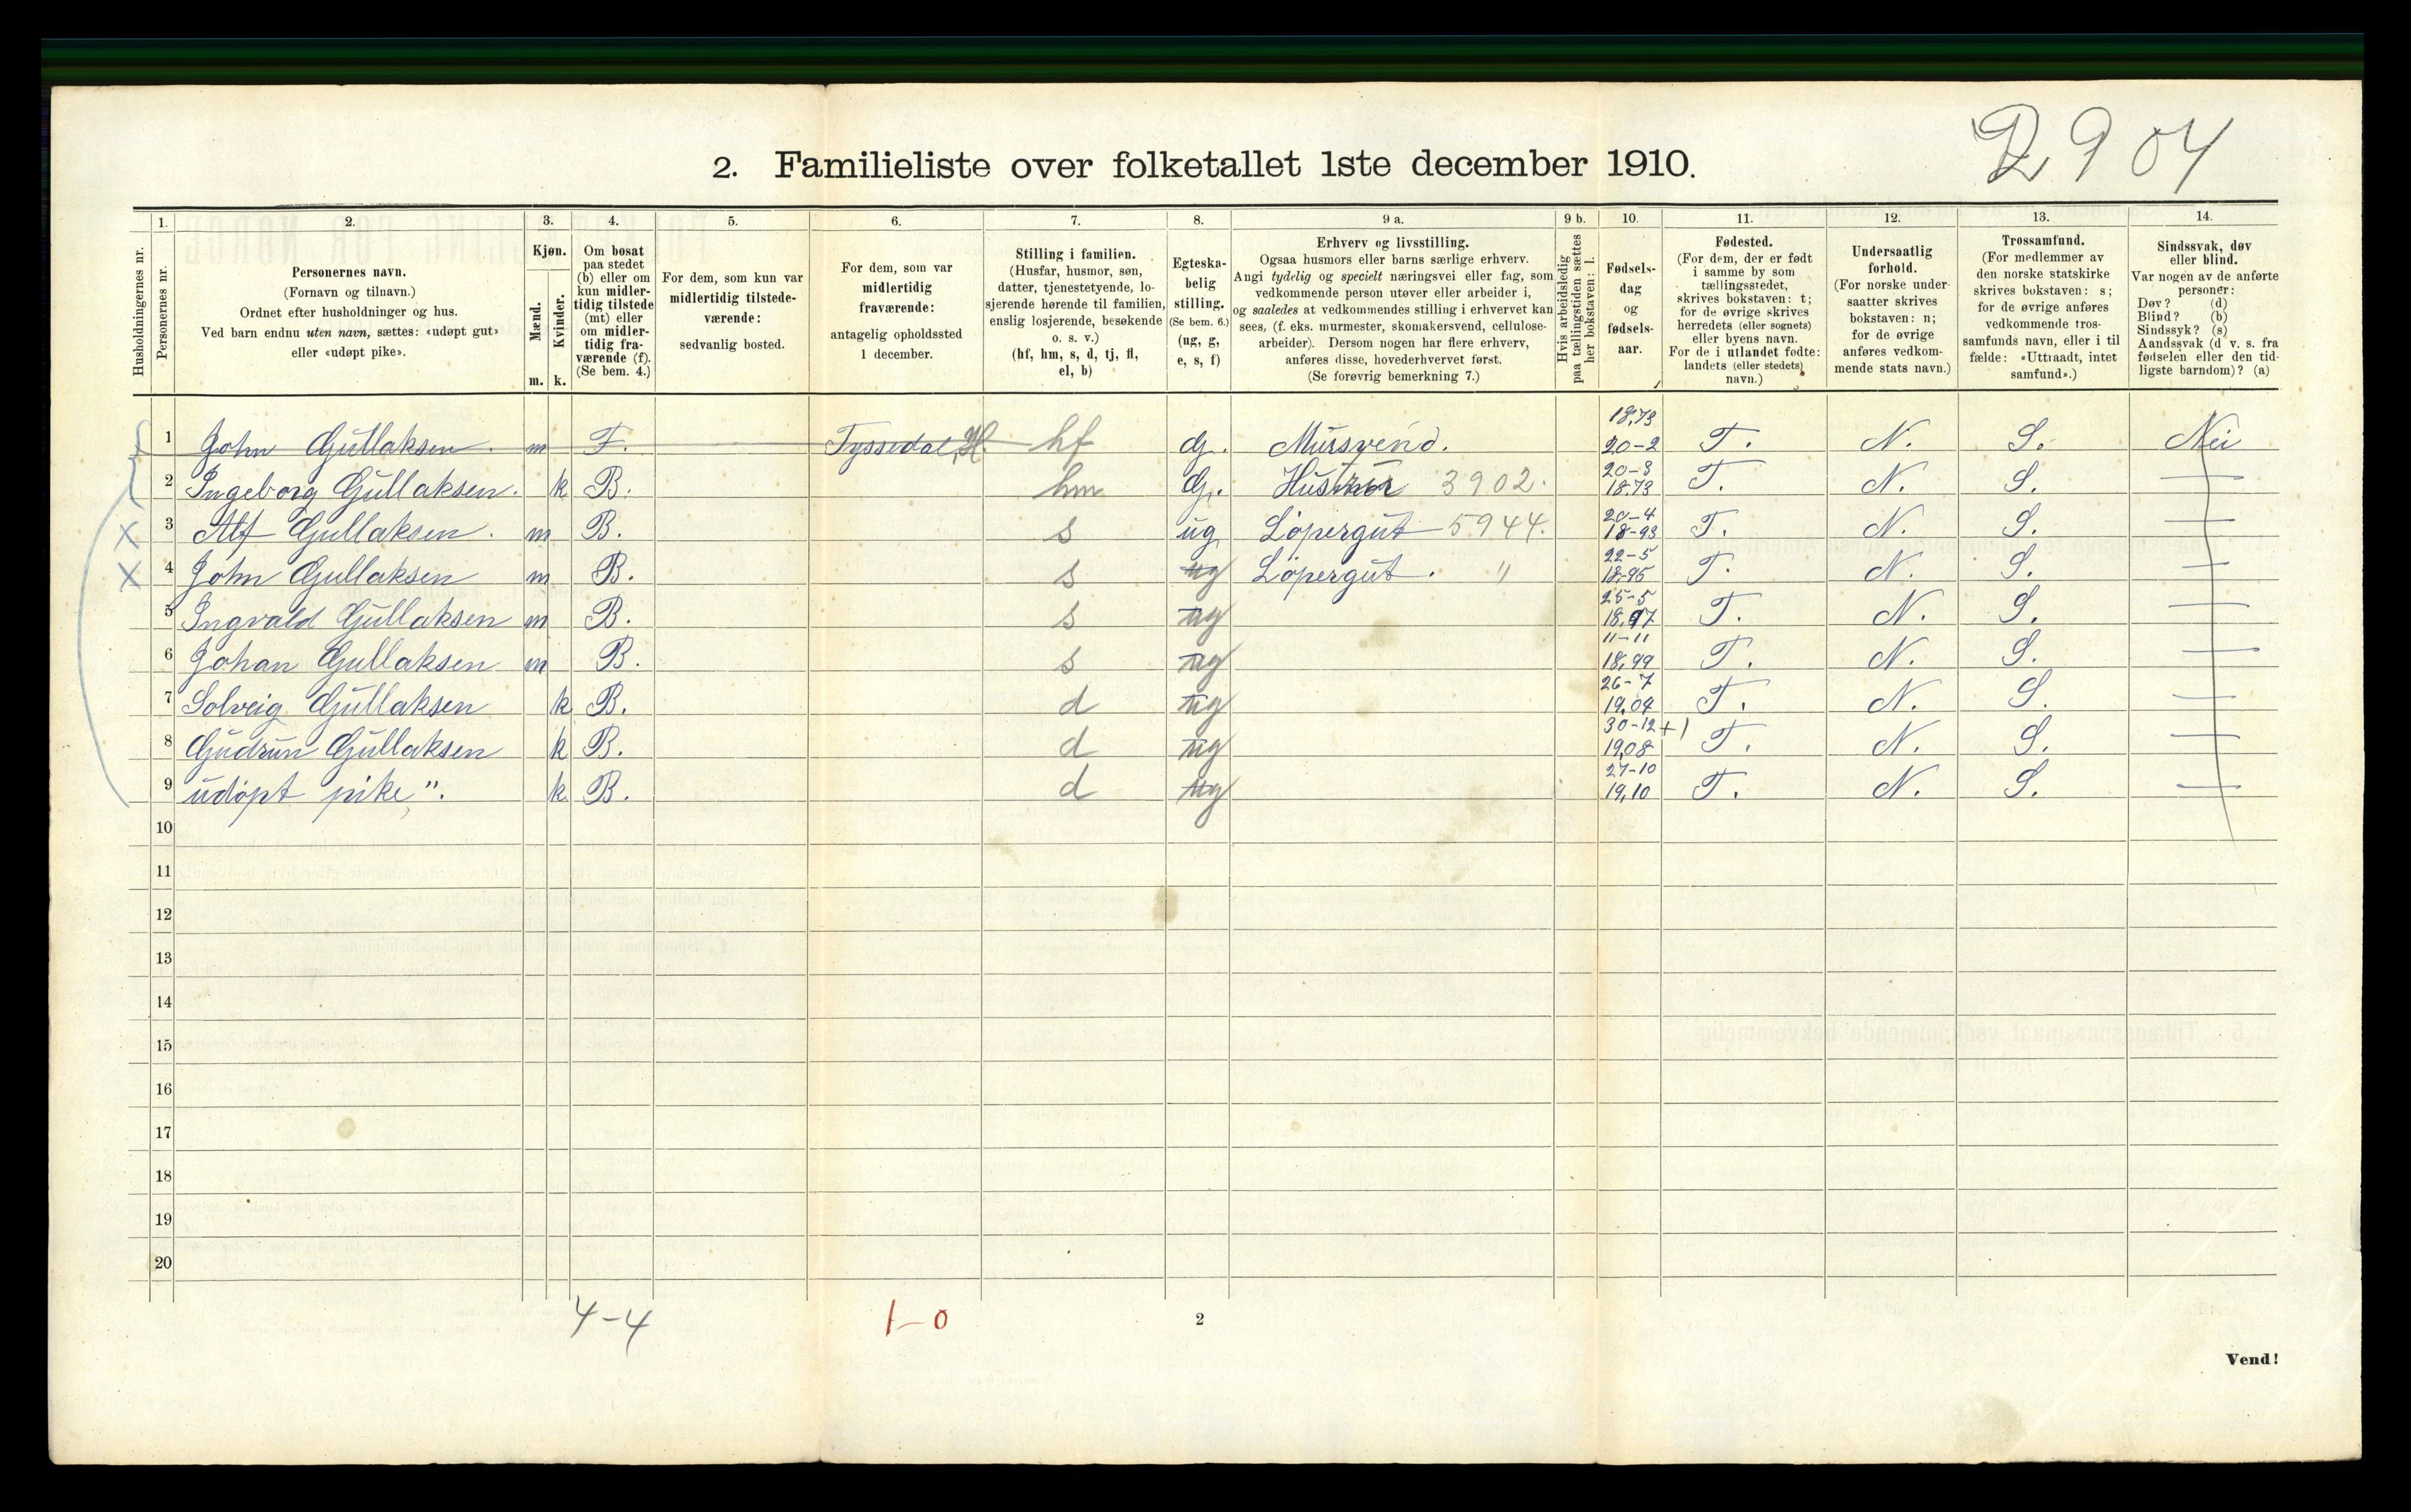 2904
2. Familieliste over folketallet 1ste december 1910.
Husholdningernes nr.
1. Personernes nr.
2. Personernes navn. (Fornavn og tilnavn.) Ordnet efter husholdninger og hus. Ved barn endnu uten navn, sættes: «udøpt gut» eller «udøpt pike».
3. Kjøn. Mænd. m. Kvinder. k.
4. Om bosat paa stedet (b) eller om kun midlertidig tilstede (mt) eller om midlertidig fraværende (f). (Se bem. 4.)
5. For dem, som kun var midlertidig tilstedeværende: sedvanlig bosted.
6. For dem, som var midlertidig fraværende: antagelig opholdssted 1 december.
7. Stilling i familien. (Husfar, husmor, søn, datter, tjenestetyende, losjerende hørende til familien, enslig losjerende, besøkende o. s. v.) (hf, hm, s, d, tj, fl, el, b)
8. Egteskabelig stilling. (Se bem. 6.) (ug, g, e, s, f)
9 a. Erhverv og livsstilling. Ogsaa husmors eller barns særlige erhverv. Angi tydelig og specielt næringsvei eller fag, som vedkommende person utøver eller arbeider i, og saaledes at vedkommendes stilling i erhvervet kan sees, (f. eks. murmester, skomakersvend, cellulosearbeider). Dersom nogen har flere erhverv, anføres disse, hovederhvervet først. (Se forøvrig bemerkning 7.)
9 b. Hvis arbeidsledig paa tællingstiden sættes her bokstaven: l.
10. Fødselsdag og fødselsaar.
11. Fødested. (For dem, der er født i samme by som tællingsstedet, skrives bokstaven: t; for de øvrige skrives herredets (eller sognets) eller byens navn. For de i utlandet fødte: landets (eller stedets) navn.)
12. Undersaatlig forhold. (For norske undersaatter skrives bokstaven: n; for de øvrige anføres vedkommende stats navn.)
13. Trossamfund. (For medlemmer av den norske statskirke skrives bokstaven: s; for de øvrige anføres vedkommende trossamfunds navn, eller i tilfælde: «Uttraadt, intet samfund».)
14. Sindssvak, døv eller blind. Var nogen av de anførte personer: Døv? (d) Blind? (b) Sindssyk? (s) Aandssvak (d v. s. fra fødselen eller den tidligste barndom)? (a)
1 John Gullaksen. m F. Tyssedal, H. hf G. Mursvend. 18,73 20-2 T. N. S. Nei
2 Ingeborg Gullaksen. k B. hm G. Husmor 3902. 20-8 18.73 T. N. S. —
X 3 Alf Gullaksen. m B. s ug Løpergut 5944. 20-4 18-93 T. N. S. —
X 4 John Gullaksen m B. s ug Løpergut. " 22-5 18-95 T. N. S. —
5 Ingvald Gullaksen m B. s ug 25-5 18,97 T. N. S. —
6 Johan Gullaksen m B. s ug 11-11 18,99 T. N. S. —
7 Solveig Gullaksen k B. d ug 26-7 19,04 T. N. S. —
8 Gudrun Gullaksen k B. d ug 30-12 +1 19,08 T. N. S. —
9 udöpt pike". k B. d ug 27-10 19,10 T. N. S. —
10
11
12
13
14
15
16
17
18
19
20
4-4 1-0 2
Vend!